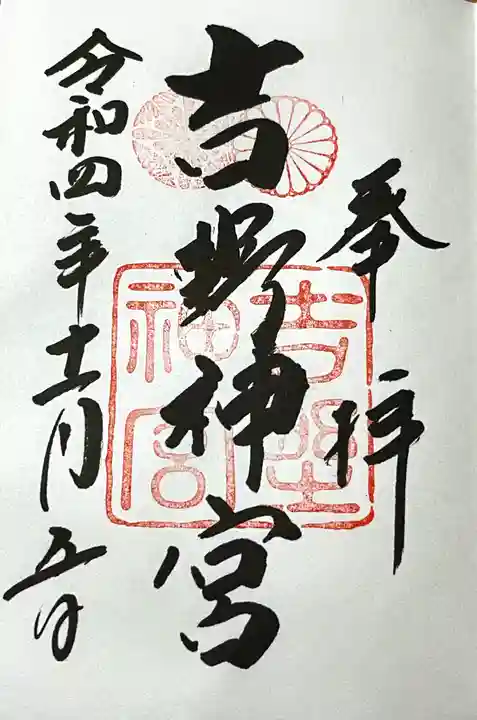 奉拝
吉野神宮
令和四年十一月五日
吉野
神宮